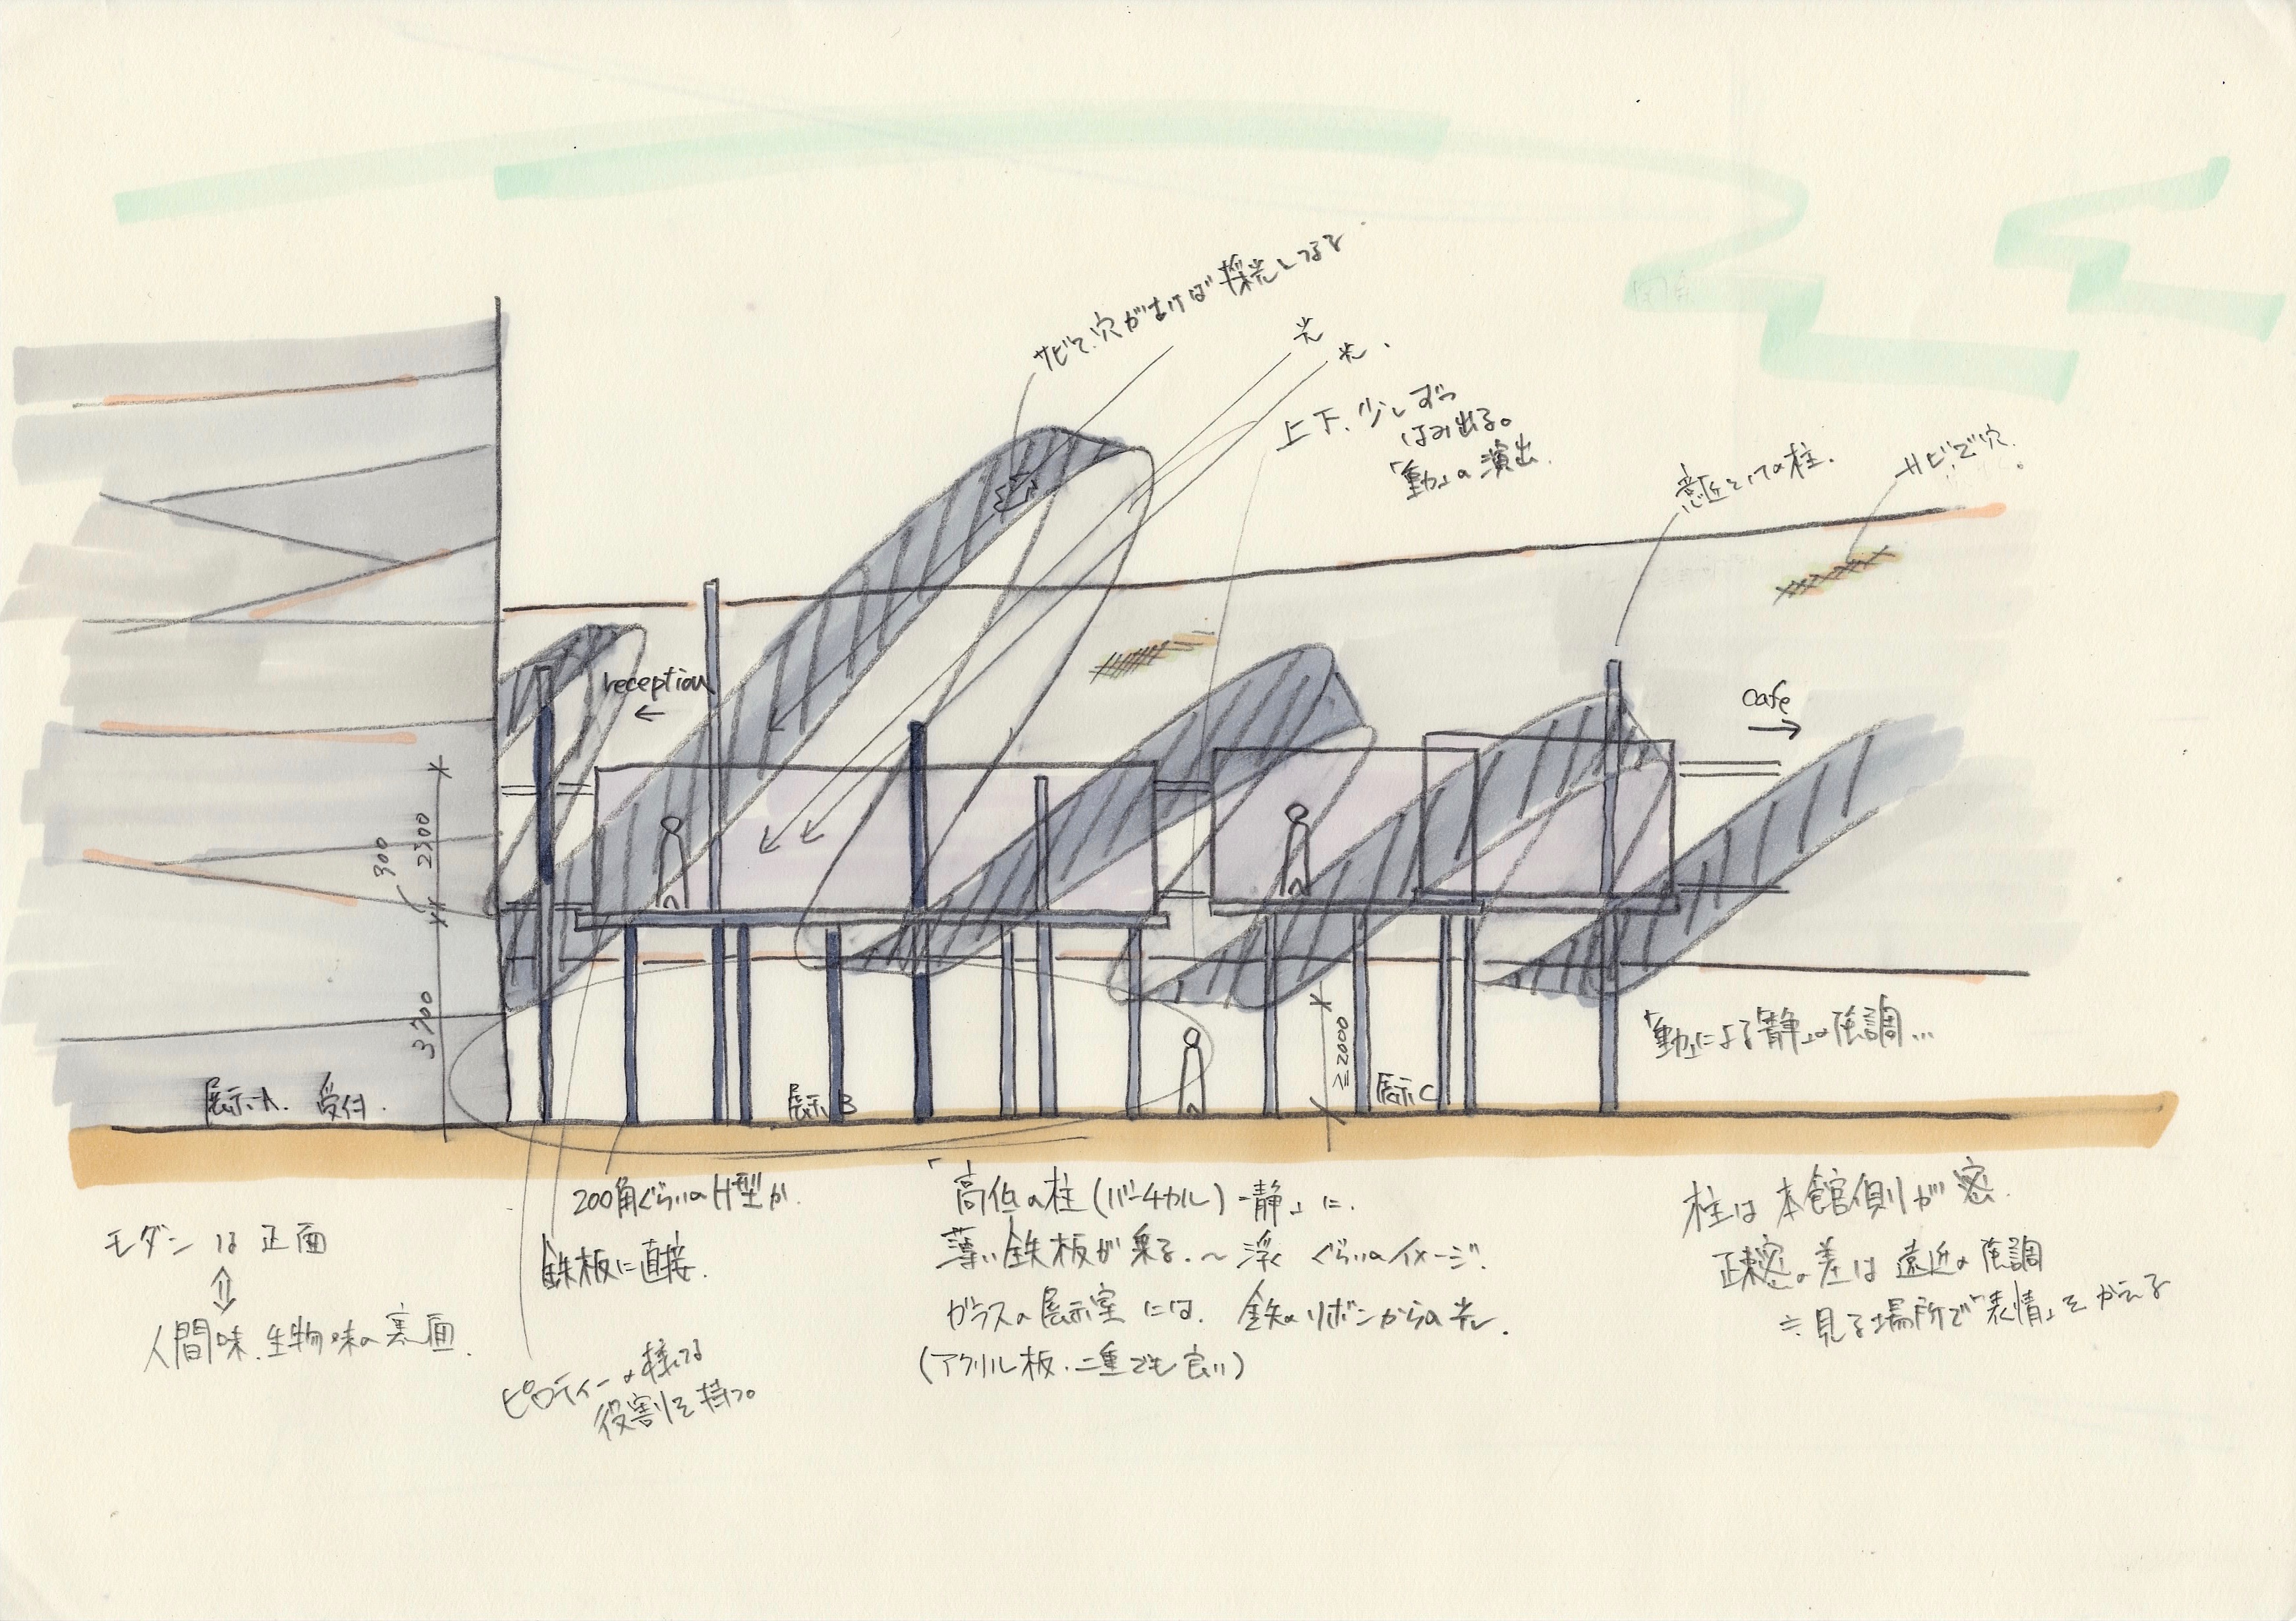 サビて、穴があけば採光となる
光
光.
上下、少しずつ
はみ出る。
「動」の演出.
意匠としての柱.
サビで穴.
reception
←
cafe
→
300
2300
3700
≧2000
「動」による「静」の強調...
展示A. 受付.
展示B
展示C
200角ぐらいのH型が.
鉄板に直接.
モダン は 正面
⇕
人間味、生物味の裏面.
ピロティーの様な
役割を持つ。
「高低の柱(バーチカル)-静」に.
薄い鉄板が乗る.~浮くぐらいのイメージ.
ガラスの展示室には. 鉄のリボンからの光.
(アクリル板.二重でも良い)
柱は本館側が密.
疎密の差は遠近の強調
見る場所で「表情」をかえる